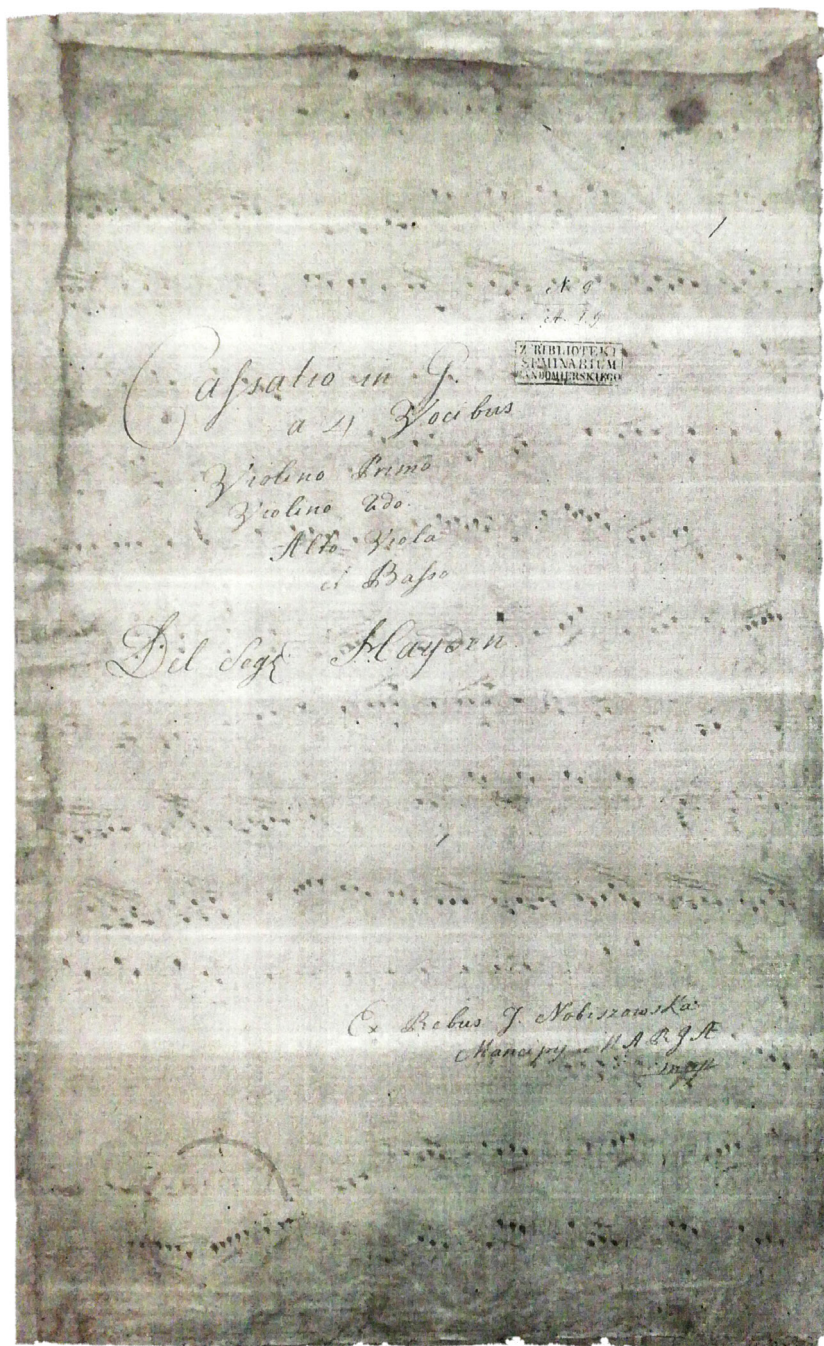 N. 9
Z BIBLIOTEKI
SEMINARIUM
SANDOMIERSKIEGO
Cassatio in G.
a 4 Vocibus
Violino Primo
Violino 2do.
Alto Viola
et Basso
Del Segr. Haydn
Ex Rebus J. Nobiszowska